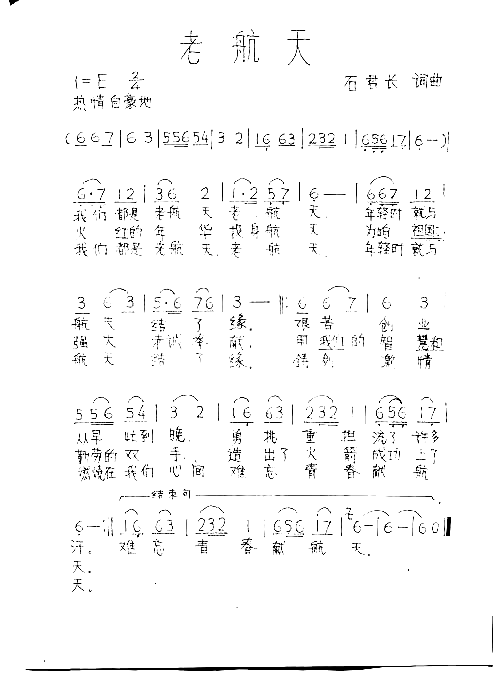 老航天
1=E 2/4 石君长 词曲
热情自豪地
(667|63|556 54|32|16 63|232 1|656 17|6-)|
6·7 12|36 2|1·2 57|6--|667 12|
我们 都是 老航 天 老 航 天. 年轻时 就与
火 红的 年 华 献身航 天 为咱 祖国
我们 都是 老航 天. 老 航 天 年轻时 就与
3 63|5·6 76|3--|:6 67|6 3|
航 天 结 了 缘. 艰 苦 创 业
强 大 来 奉 献. 用 我们的 智 慧和
航 天 结 了 缘. 激 情
556 54|32|16 63|232 1|656 17|
从早 忙到 晚. 勇 挑 重 担 流了 许多
勤劳的 双 手. 造 出了 火 箭 成功 上了
燃烧在 我们 心间 难忘 青 春 献 航
结束句
6-:|16 63|232 1|656 17|6-|6-|60‖
汗. 难 忘 青 春 献 航 天.
天.
天.